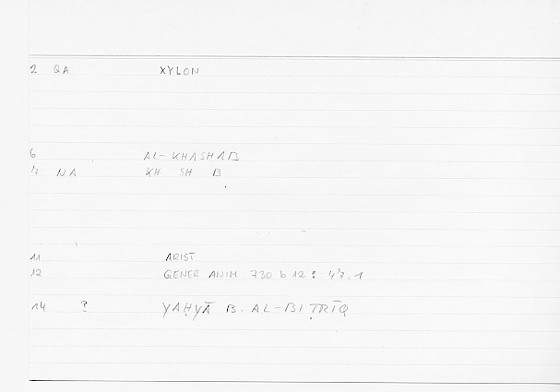 2 QA XYLON
6 AL-KHASHAB
7 NA KH SH B
11 ARIST
12 GENER ANIM 730 b 12 : 47.1
14 ? YAḤYĀ B. AL-BIṬRĪQ